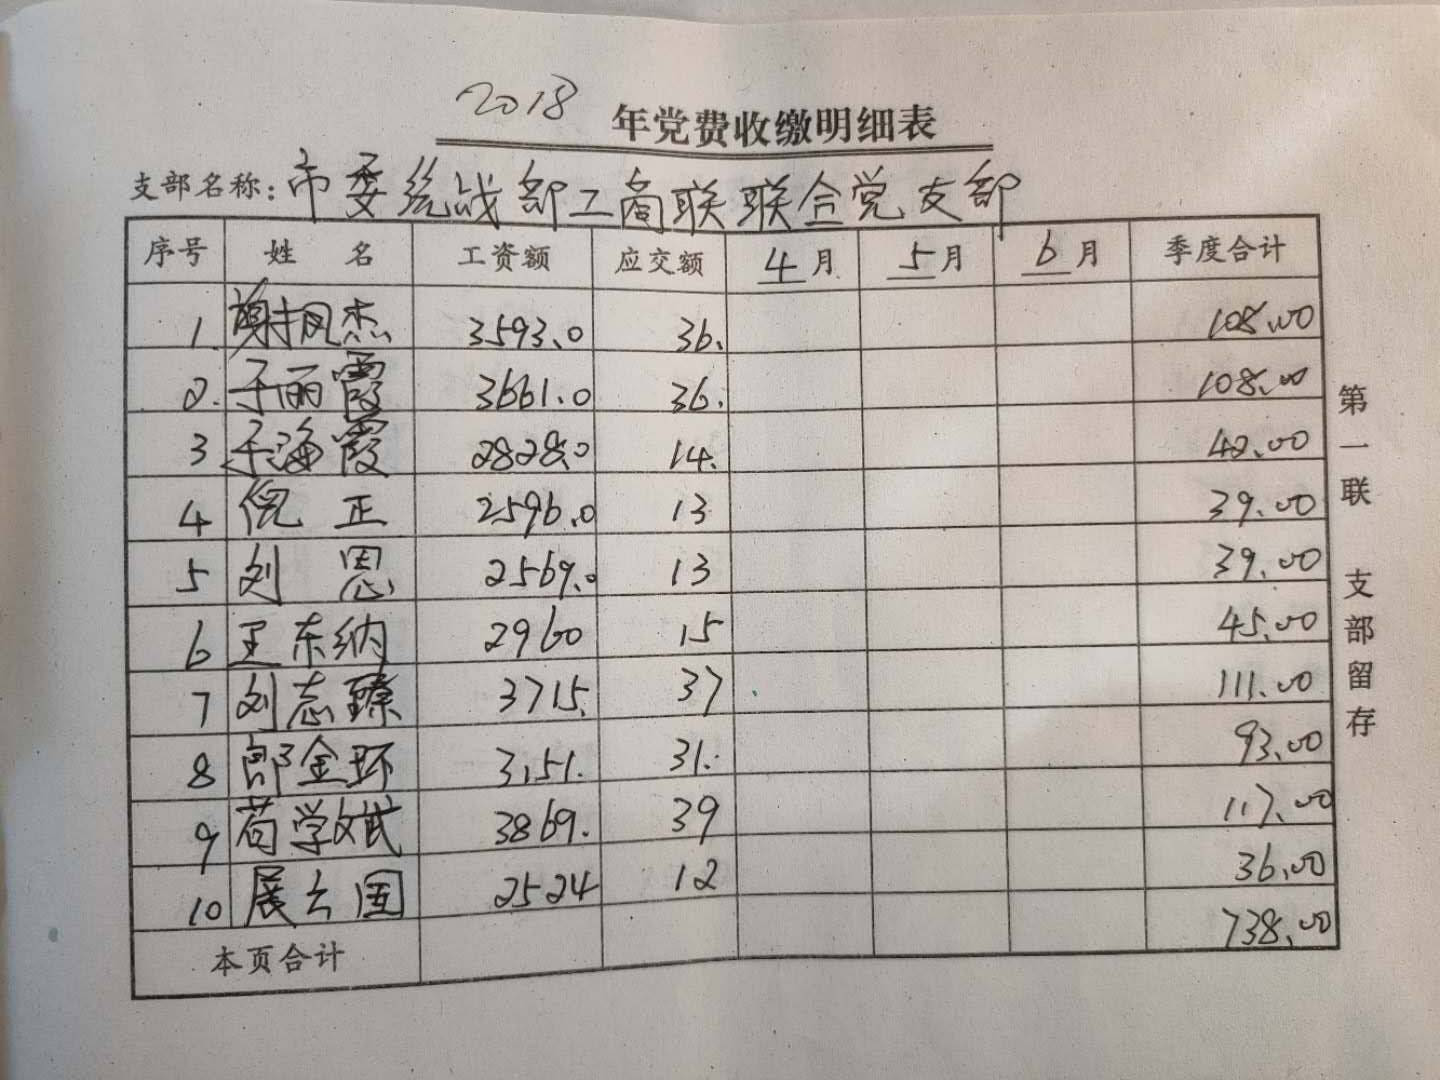 2018 年党费收缴明细表
支部名称: 市委统战部工商联联合党支部
序号 姓 名 工资额 应交额 4月 5月 6月 季度合计
1. 谢振杰 3593.0 36. 108.00
2. 于丽霞 3661.0 36. 108.00
3 于海霞 2828.0 14. 42.00
4 倪 正 2596.0 13 39.00
5 刘 恩 2569.0 13 39.00
6 王东纳 2960 15 45.00
7 刘志臻 3715. 37 111.00
8 郎金环 3151. 31. 93.00
9 荀学斌 3869. 39 117.00
10 展云国 2524 12 36.00
本页合计 738.00
第一联 支部留存